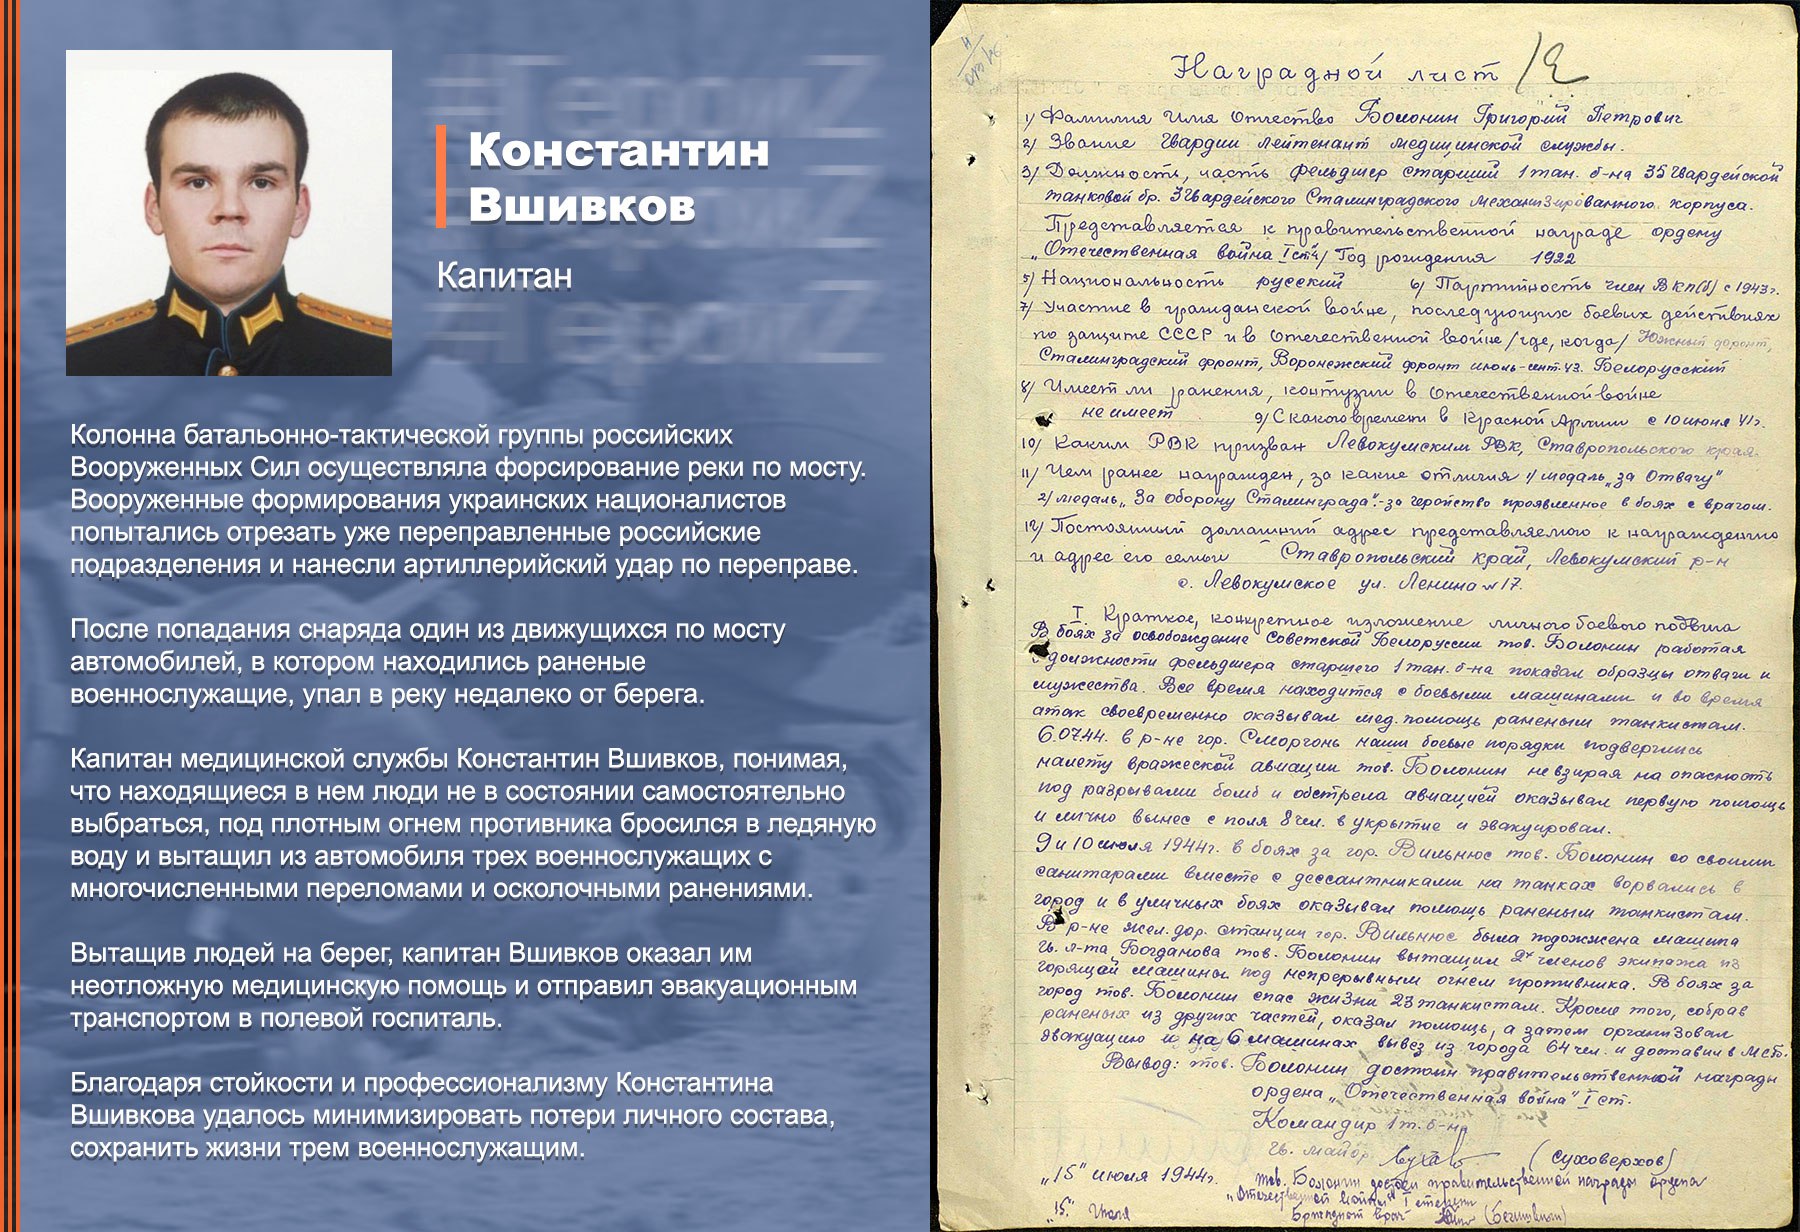 #ГероиZ
Константин
Вшивков
Капитан
Колонна батальонно-тактической группы российских
Вооруженных Сил осуществляла форсирование реки по мосту.
Вооруженные формирования украинских националистов
попытались отрезать уже переправленные российские
подразделения и нанесли артиллерийский удар по переправе.
После попадания снаряда один из движущихся по мосту
автомобилей, в котором находились раненые
военнослужащие, упал в реку недалеко от берега.
Капитан медицинской службы Константин Вшивков, понимая,
что находящиеся в нем люди не в состоянии самостоятельно
выбраться, под плотным огнем противника бросился в ледяную
воду и вытащил из автомобиля трех военнослужащих с
многочисленными переломами и осколочными ранениями.
Вытащив людей на берег, капитан Вшивков оказал им
неотложную медицинскую помощь и отправил эвакуационным
транспортом в полевой госпиталь.
Благодаря стойкости и профессионализму Константина
Вшивкова удалось минимизировать потери личного состава,
сохранить жизни трем военнослужащим.
Наградной лист
1/ Фамилия Имя Отчество Болонин Григорий Петрович
2/ Звание Гвардии лейтенант медицинской службы.
3/ Должность, часть фельдшер старший 1 тан. б-на 35 Гвардейской
танковой бр. 3 Гвардейского Сталинградского механизированного корпуса.
Представляется к правительственной награде ордену
„Отечественная война I ст 4/ Год рождения 1922
5/ Национальность русский 6/ Партийность член ВКП(б) с 1943 г.
7/ Участие в гражданской войне, последующих боевых действиях
по защите СССР и в отечественной войне /где, когда/ Южный фронт,
Сталинградский фронт, Воронежский фронт июль-сент. 43. Белорусский
8/ Имеет ли ранения, контузии в отечественной войне
не имеет 9/ С какого времени в Красной Армии с 10 июня 41 г.
10/ Каким РВК призван Левокумским РВК, Ставропольского края.
11/ Чем ранее награжден, за какие отличия 1/ медаль „за Отвагу"
2/ медаль „За оборону Сталинграда" - за геройство проявленное в боях с врагом.
12/ Постоянный домашний адрес представляемого к награждению
и адрес его семьи Ставропольский край, Левокумский р-н
с. Левокумское ул. Ленина № 17.
I. Краткое, конкретное изложение личного боевого подвига
В боях за освобождение Советской Белоруссии тов. Болонин работая
в должности фельдшера старшего 1 тан. б-на показал образцы отваги и
мужества. Все время находится с боевыми машинами и во время
атак своевременно оказывал мед. помощь раненым танкистам.
6.07.44. в р-не гор. Сморгонь наши боевые порядки подверглись
налету вражеской авиации тов. Болонин невзирая на опасность
под разрывами бомб и обстрела авиацией оказывал первую помощь
и лично вынес с поля 8 чел. в укрытие и эвакуировал.
9 и 10 июля 1944 г. в боях за гор. Вильнюс тов. Болонин со своими
санитарами вместе с дессантниками на танках ворвались в
город и в уличных боях оказывал помощь раненым танкистам.
В р-не жел. дор. станции гор. Вильнюс была подожжена машина
гв. л-та Богданова тов. Болонин вытащил 2х членов экипажа из
горящей машины под непрерывным огнём противника. В боях за
город тов. Болонин спас жизни 23 танкистам. Кроме того, собрав
раненых из других частей, оказал помощь, а затем организовал
эвакуацию и на 6 машинах вывез из города 64 чел. и доставил в МСБ.
Вывод: тов. Болонин достоин правительственной награды
ордена „Отечественная война" I ст.
Командир 1 т. б-на
гв. майор (Суховерхов)
„15" июля 1944 г. тов. Болонин достоин правительственной награды ордена
„Отечественной войны" I степени
„15" Июля Бригадный врач